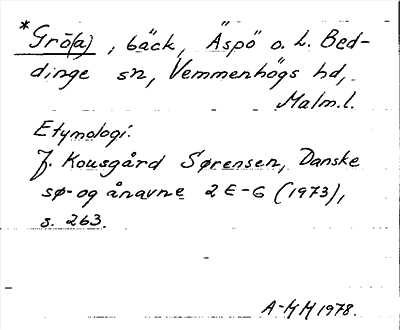 *Grö(a), bäck, Äspö o. L. Bed-
dinge sn, Vemmenhögs hd,
Malm.l.
Etymologi:
J. Kousgård Sørensen, Danske
sø- og ånavne 2 E-G (1973),
s. 263.
A-MM 1978.